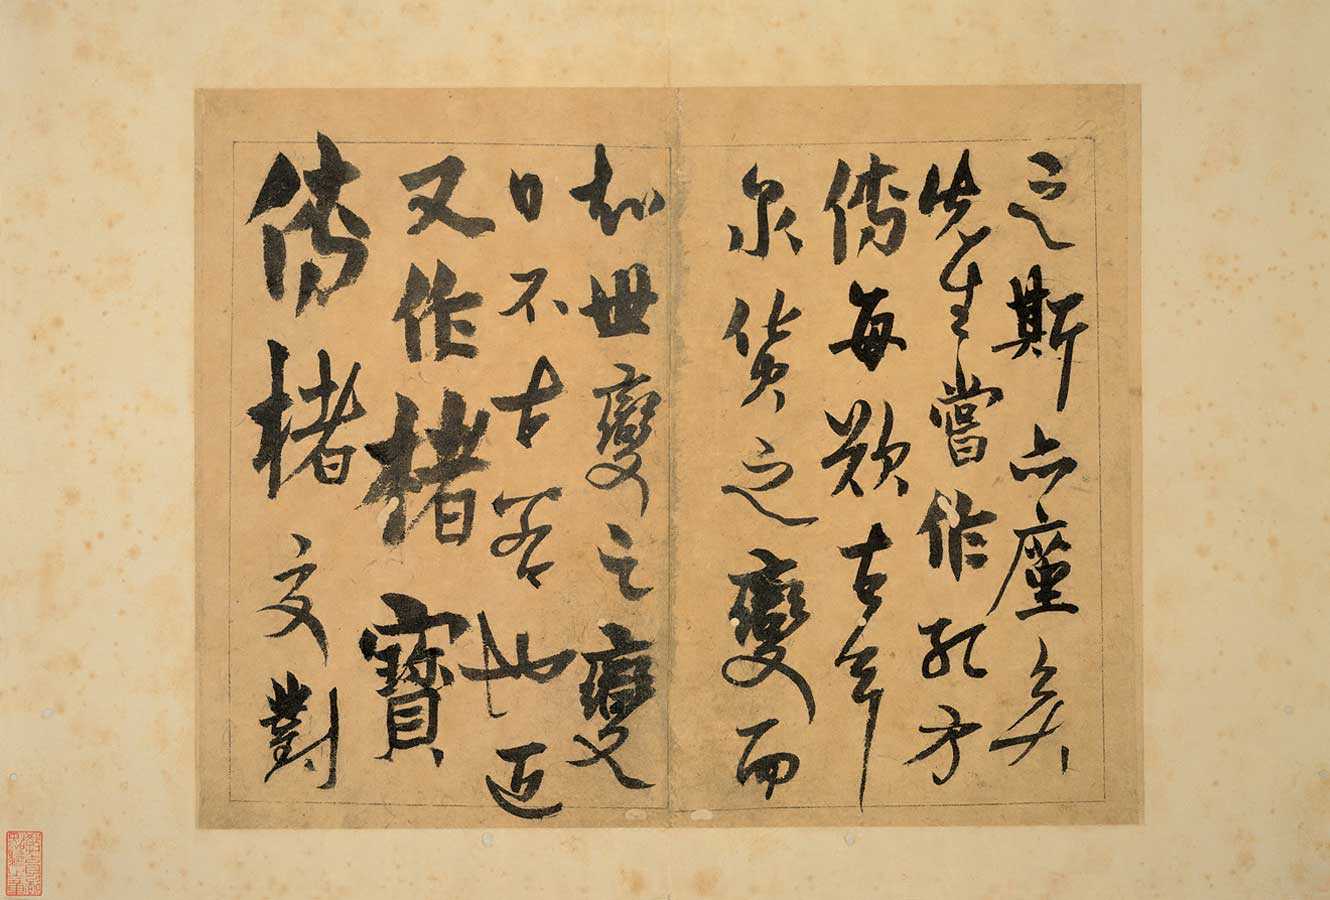 之斯亦矣
先生嘗作孔方
傳每歎古今
泉貨之變而
知世變之變
日不古若也近
又作楮寶
傳楮交對